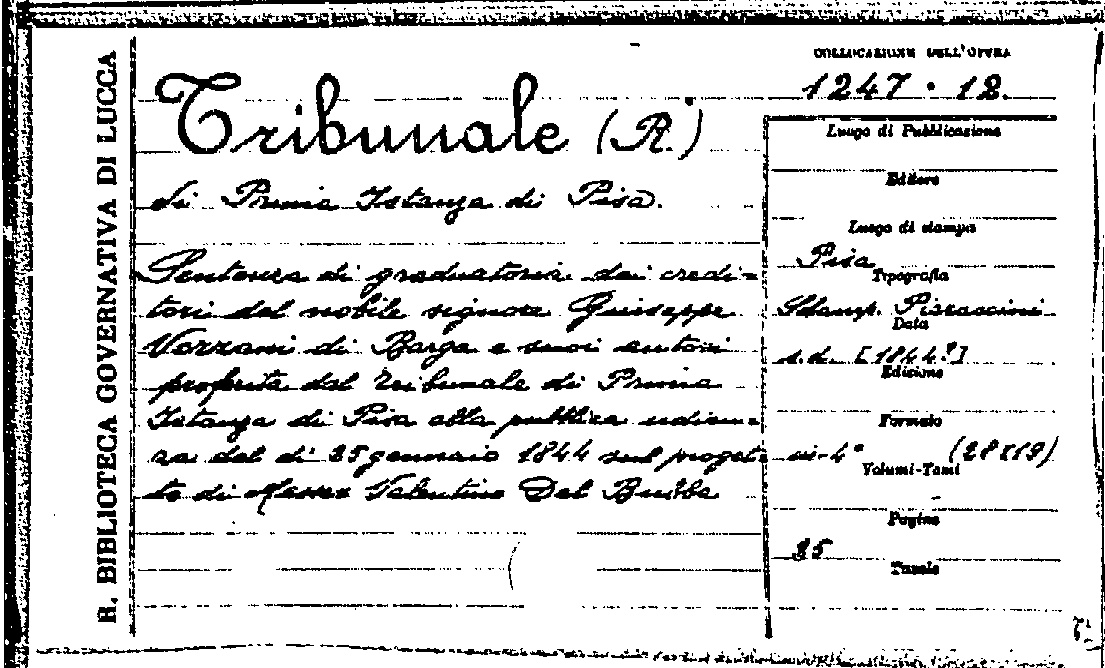 R. BIBLIOTECA GOVERNATIVA DI LUCCA
COLLOCAZIONE DELL'OPERA
1247 . 12.
Tribunale (R.)
di Prima Istanza di Pisa.
Sentenza di graduatoria dei credi=
tori del nobile signore Giuseppe
di Barga e suoi autori
proferita dal Tribunale di Prima
Istanza di Pisa alla pubblica udien=
za del dì 25 gennaio 1844 sul proget=
to di Messer Valentino Del
Luogo di Pubblicazione
Editore
Luogo di stampa
Pisa
Tipografia
Stamp. Pieraccini
Data
s.d. [1844?]
Edizione
Formato
in-4° (28x19)
Volumi-Tomi
Pagine
25
Tavole